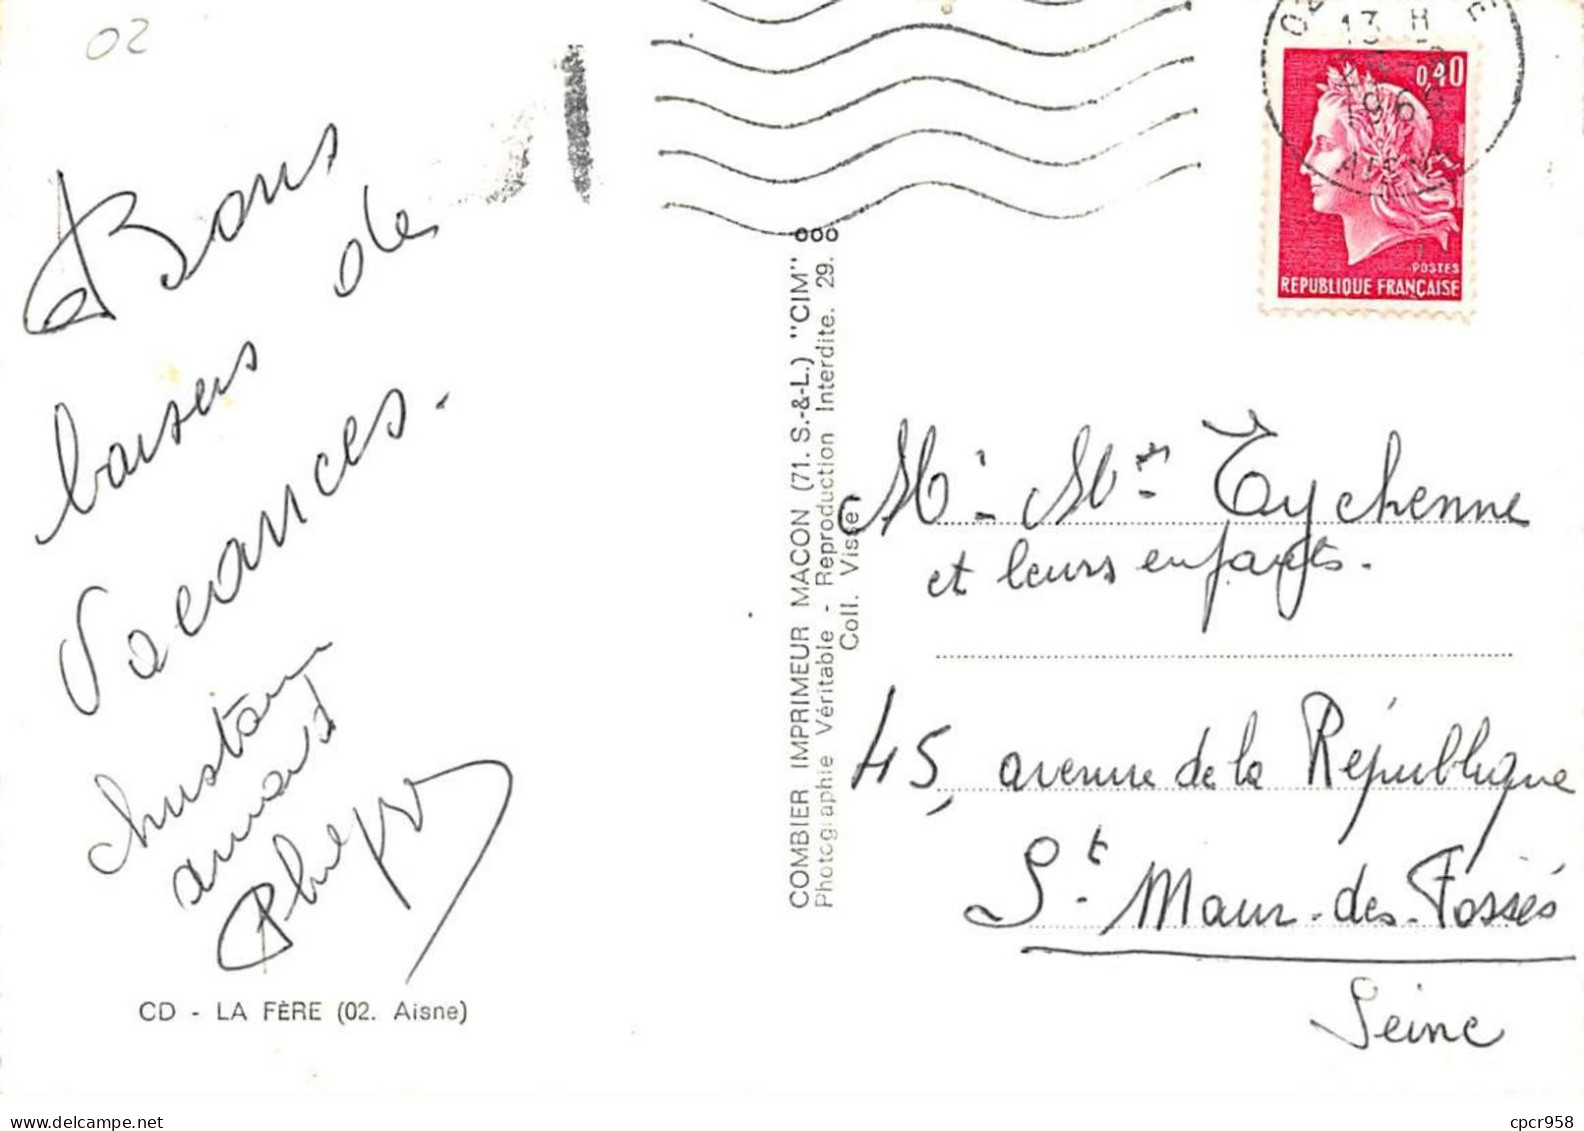 02
Bons
baisers de
Vacances.
CD - LA FÈRE (02. Aisne)
COMBIER IMPRIMEUR MACON (71. S.-&-L.) "CIM"
Photographie Véritable - Reproduction Interdite. 29.
Coll. Visse
13 H
1969
AISNE
0,40
POSTES
REPUBLIQUE FRANÇAISE
Mr - Mme Tychenne
et leurs enfants.
45, avenue de la République
St. Maur-des-Fossés
Seine
cpcr958